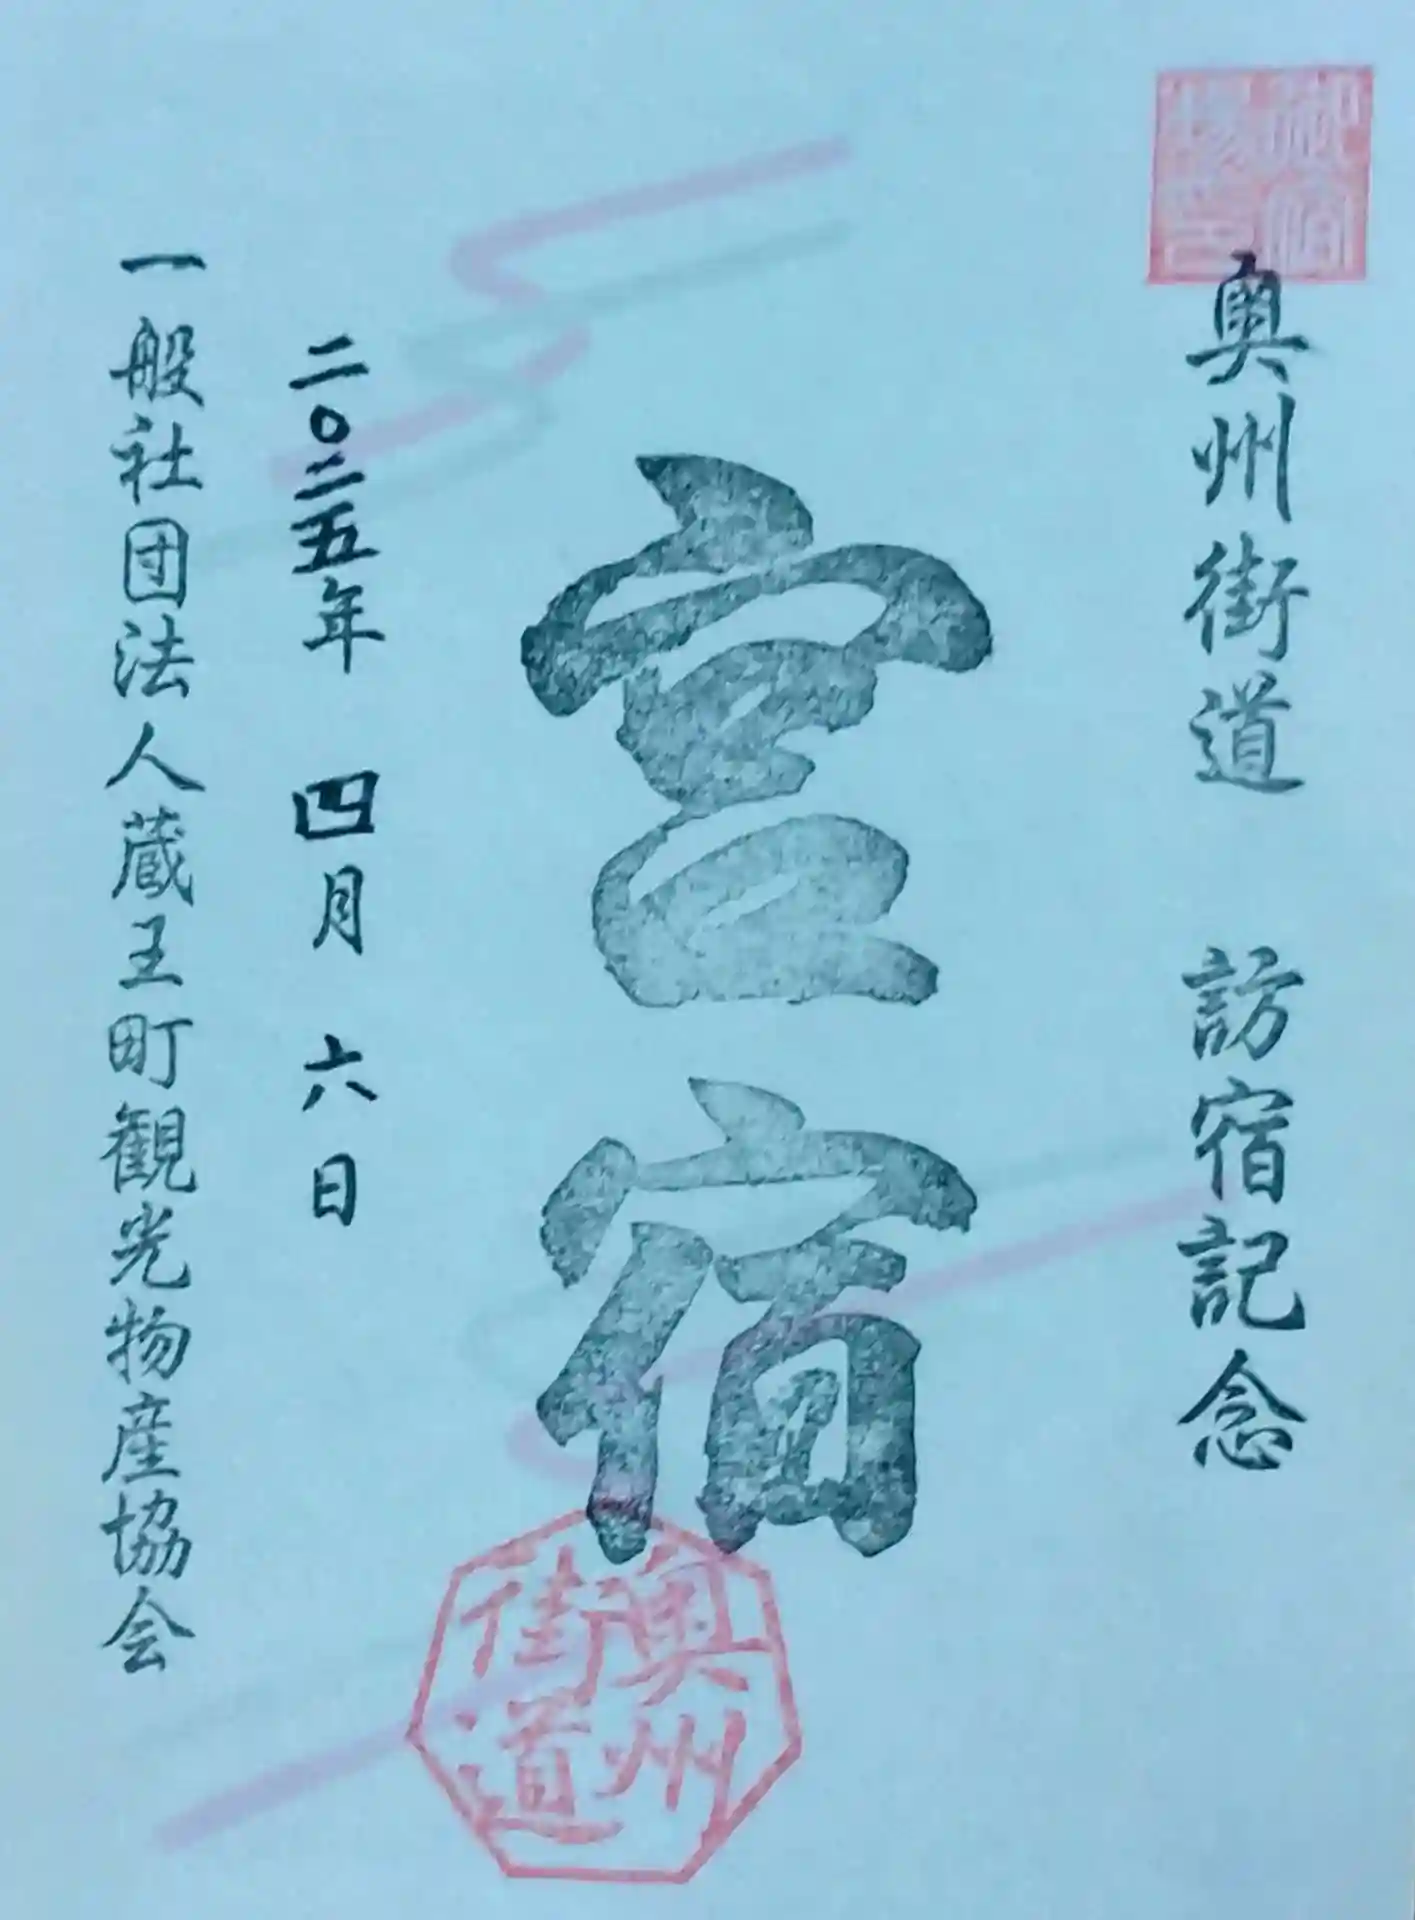 奥州街道 訪宿記念
宮宿
二〇二五年 四月 六日
一般社団法人蔵王町観光物産協会
御宿
場印
奥州
街道